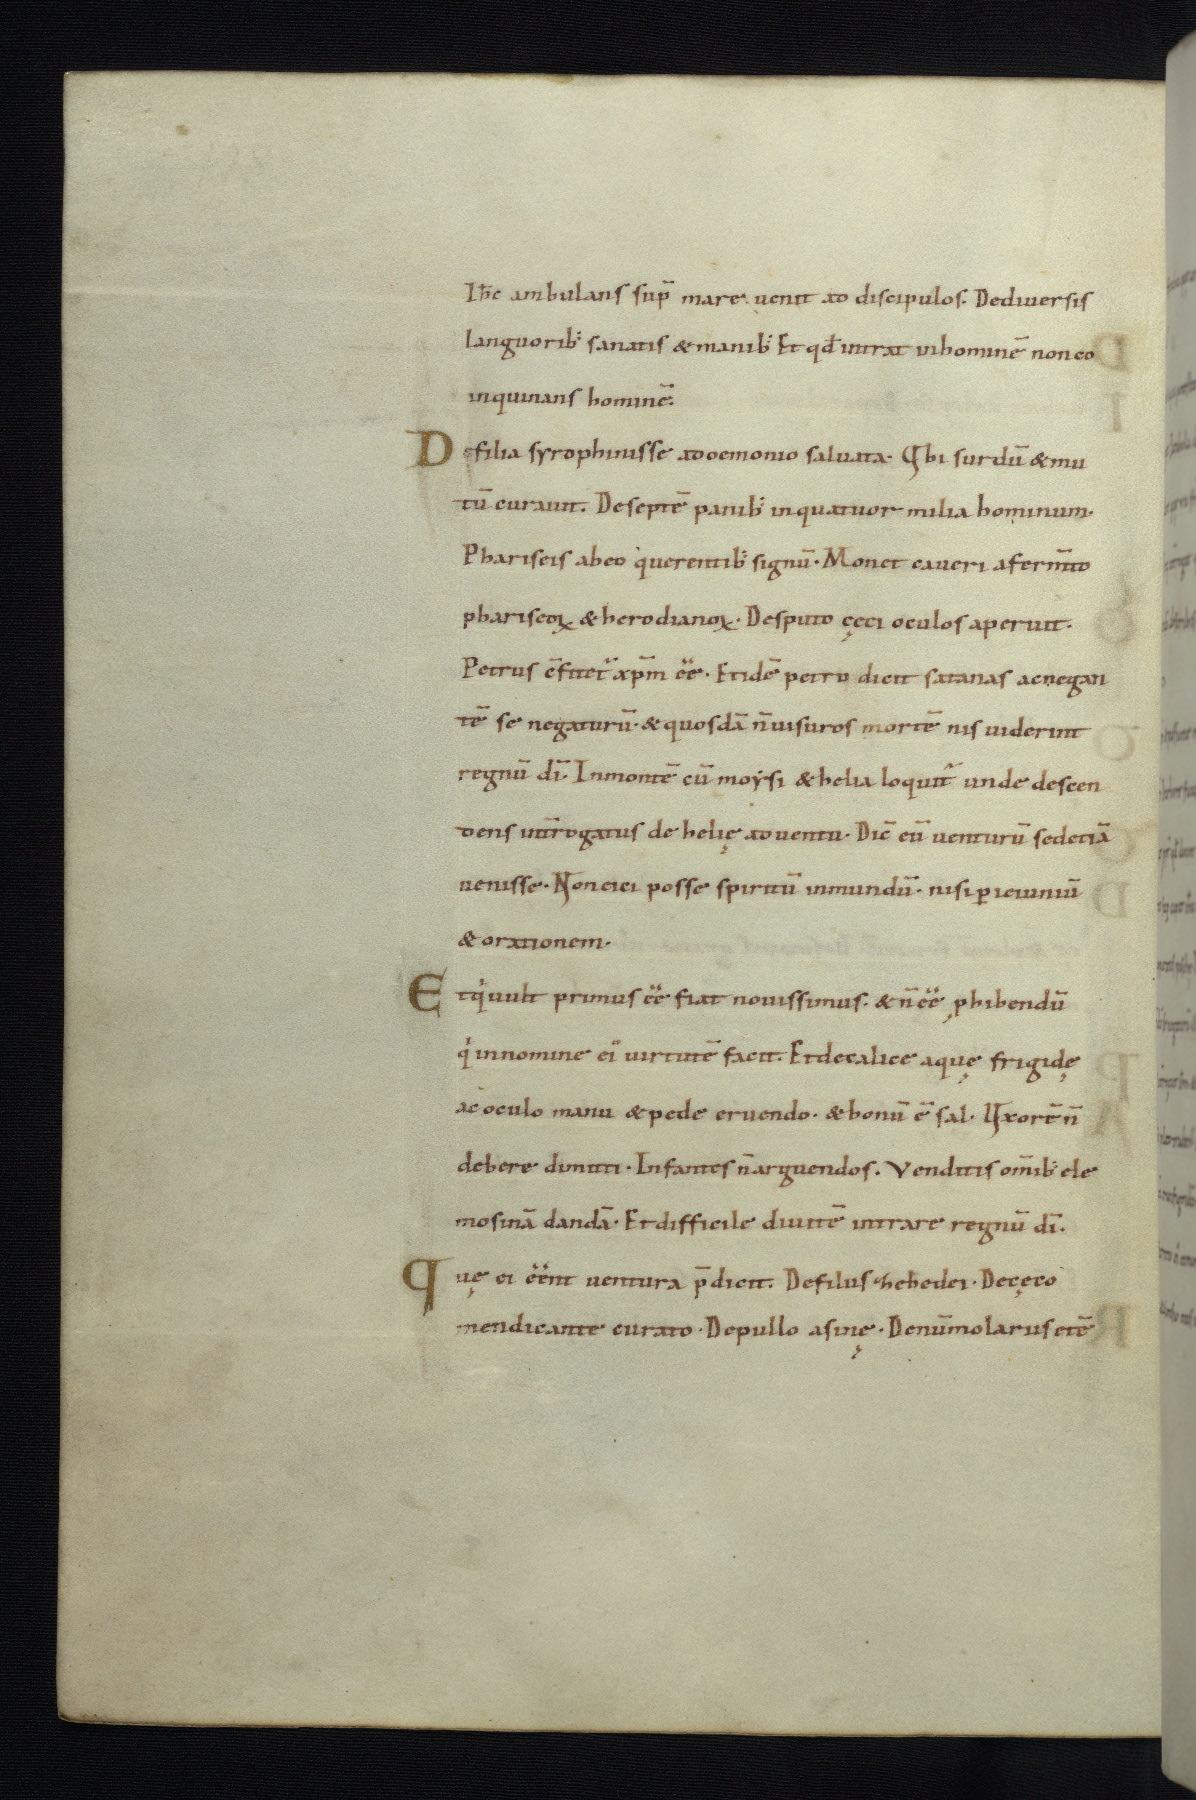 Ihc ambulans sup̄ mare uenit ad discipulos. Dediuersis
languorib; sanatis & manib; Et qđ intrat in hominē non co
inquinans hominē.
Defilia syrophinisse ademonio saluata. Vbi surdū & mu
tū curauit. Deseptē panib; inquatuor milia hominum.
Phariseis abeo querentib; signū. Monet caueri afermīto
phariseoꝝ & herodianoꝝ. Desputo cęci oculos aperuit.
Petrus c̄fitet̄ xp̄m ēē. Etidē petro dicit satanas acnegan
tē se negaturū. & quosdā n̄ uisuros mortē nis uiderint
regnū dī. Inmontē cū moẏsi & helia loquit̄ unde descen
dens int̄rogatus de helię aduentu. Dic̄ eū uenturū sedetiā
uenisse. Non eici posse spiritū inmundū. nisi ꝑ ieiuniū
& orationem.
Et qͥ uult primus ēē fiat nouissimus. & n̄ ēē ꝓhibendū
qͥ innomine ei' uirtutē facit. Etdecalice aquę frigidę
ac oculo manu & pede eruendo. & bonū ē sal. Vxorē n̄
debere dimitti. Infantes n̄ arguendos. Venditis om̄ib; ele
mosinā dandā. Et difficile diuitē intrare regnū dī.
Quę ei ēēnt uentura p̄dicit. Defilus zebedei. Decęco
mendicante curato. Depullo asinę. Denūmolariis etē